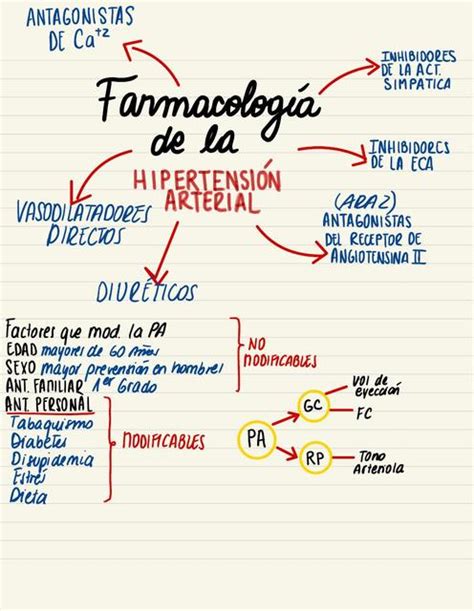 ANTAGONISTAS
DE Ca⁺²
INHIBIDORES
DE LA ACT.
SIMPATICA
Farmacología
de la
HIPERTENSIÓN
ARTERIAL
INHIBIDORES
DE LA ECA
VASODILATADORES
DIRECTOS
(ARA2)
ANTAGONISTAS
DEL RECEPTOR DE
ANGIOTENSINA II
DIURÉTICOS
Factores que mod. la PA
EDAD mayores de 60 Años
SEXO mayor prevención en hombres
ANT. FAMILIAR 1er Grado
NO
MODIFICABLES
ANT PERSONAL
Tabaquismo
Diabetes
Disupidemia
Estrés
Dieta
MODIFICABLES
PA
GC
Vol de
eyección
FC
RP
Tono
Arteriola